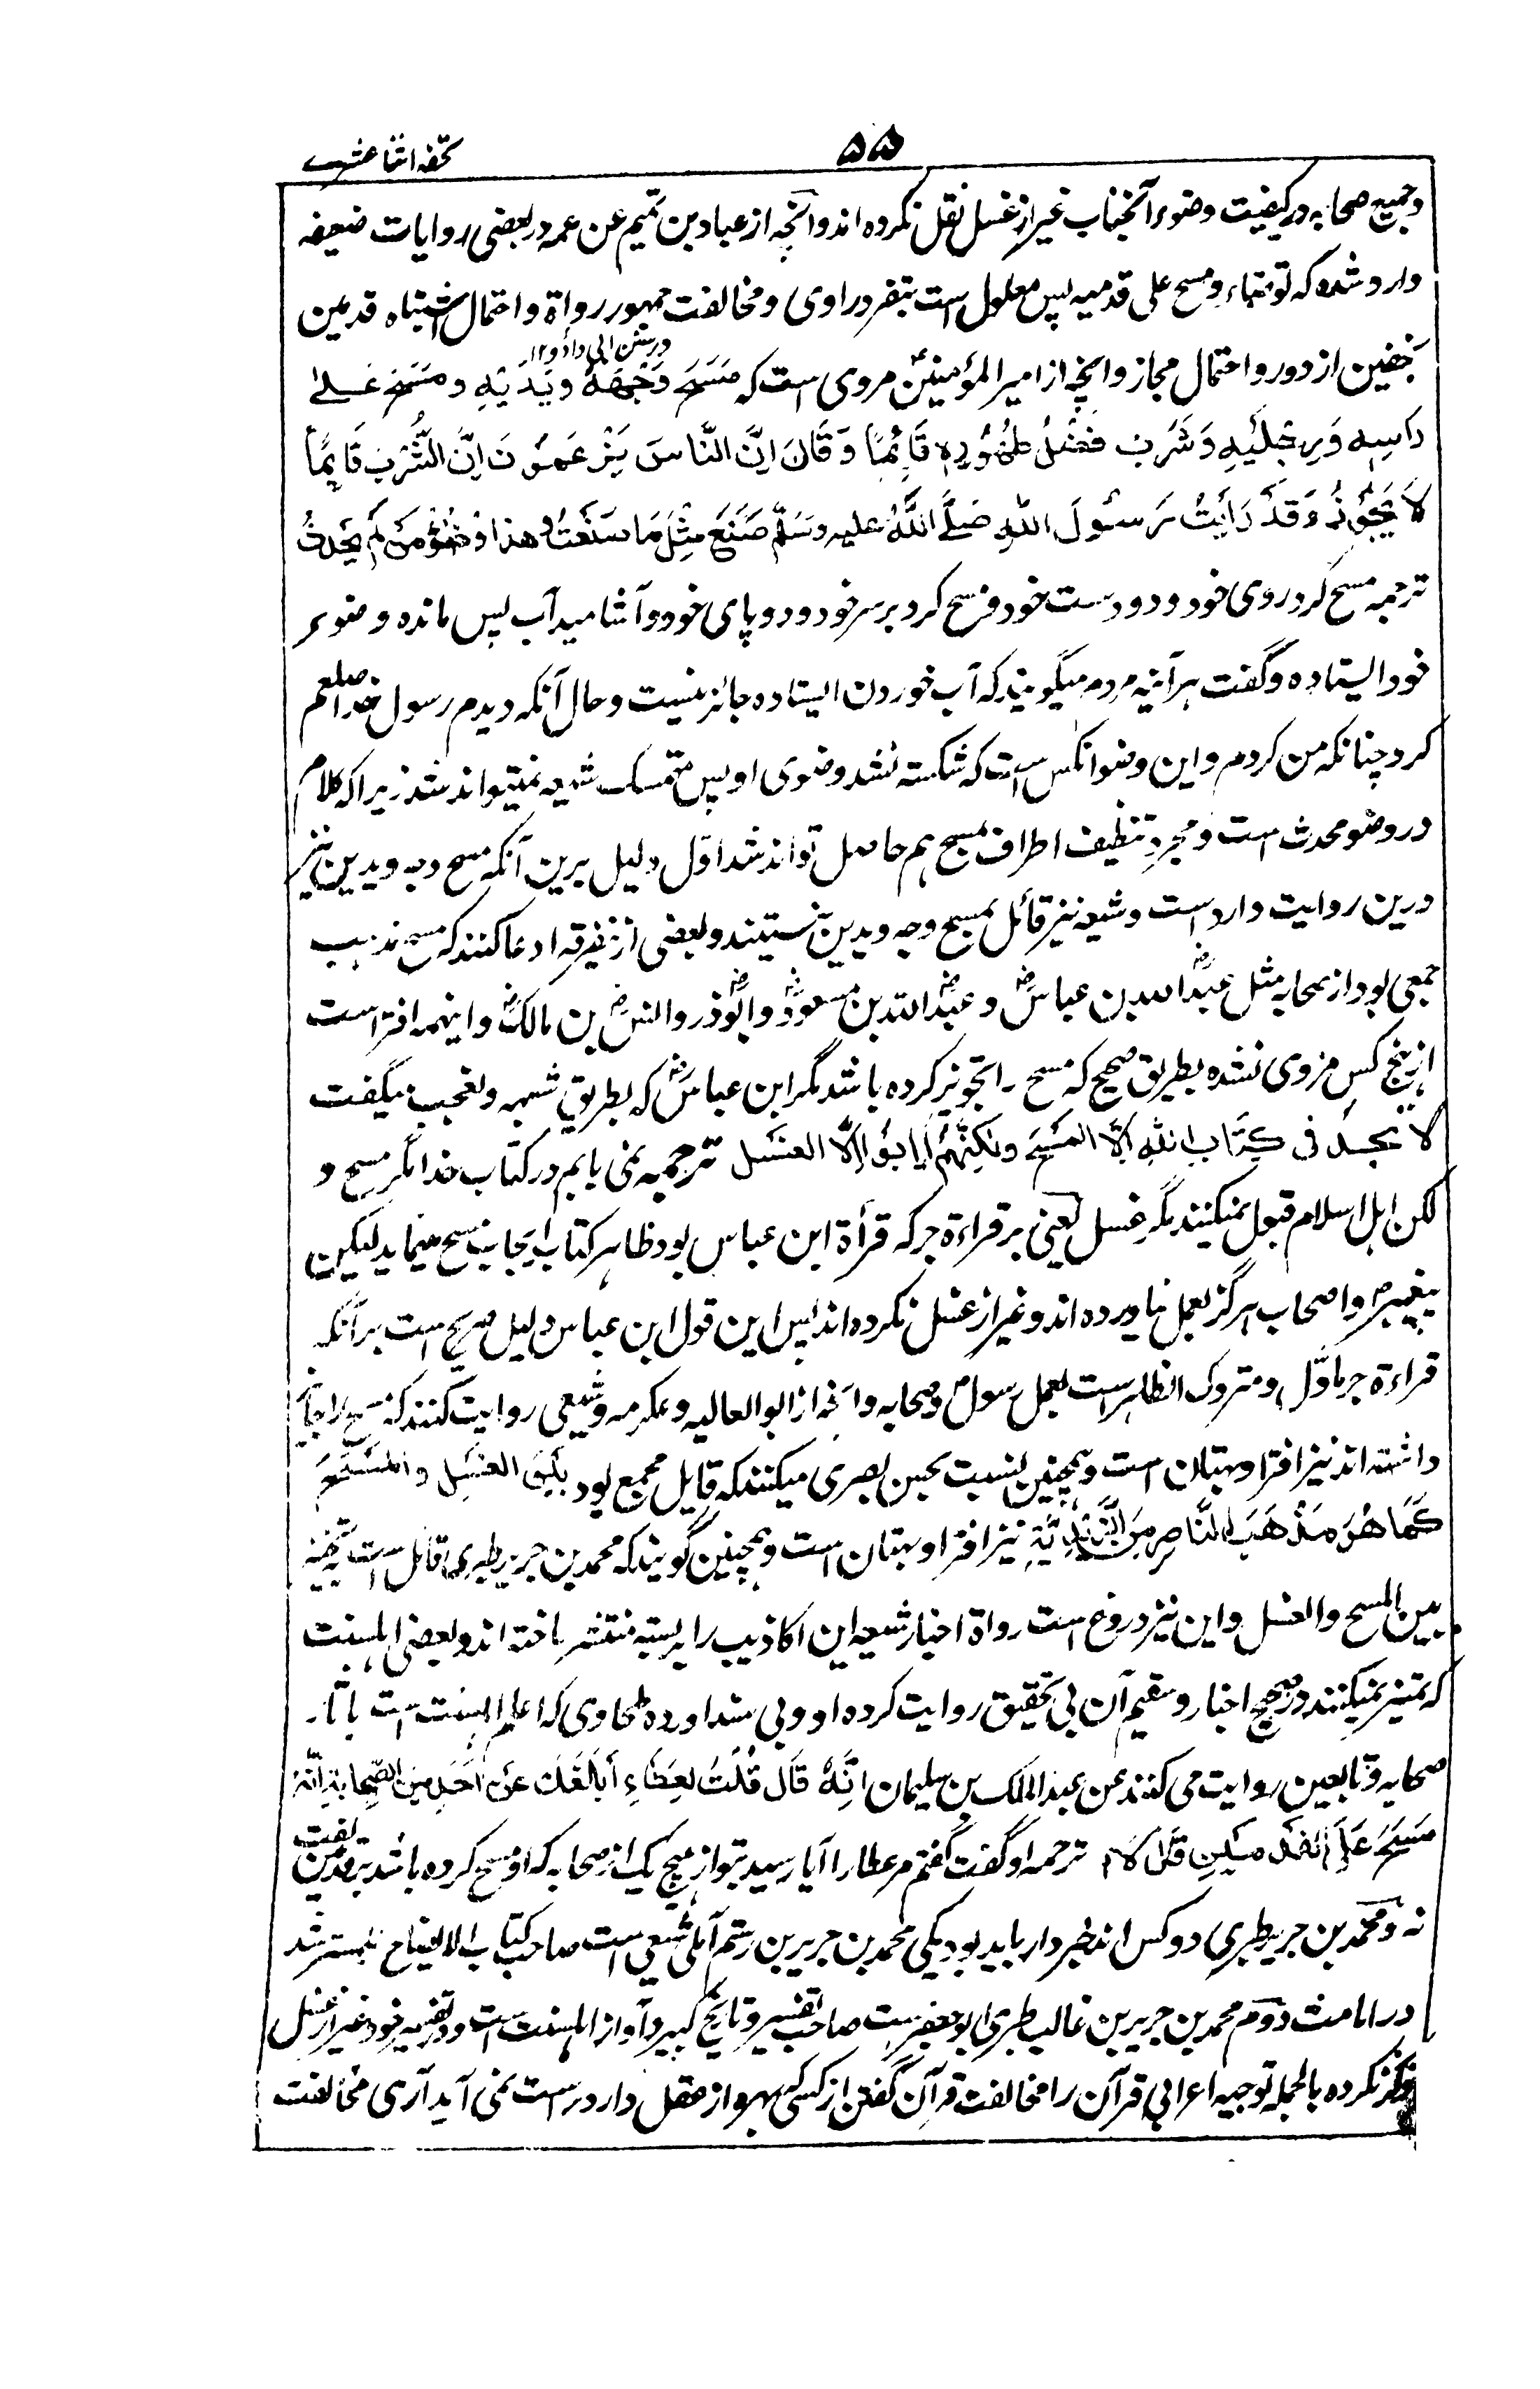 ۵۵
تحفه اثنا عشریه
و جمیع صحابه در کیفیت وضوء آنجناب غیر از غسل نقل نکرده اند و آنچه از عباد بن تمیم عن عمه در بعضی روایات ضعیفه
وارد شده که توضاء و مسح علی قدمیه پس معلول است بتفرد راوی و مخالفت جمهور رواة و احتمال اشتباه قدمین
در سنن ابی داؤد ۱۲
بخفین از دور و احتمال مجاز و آنچه از امیر المؤمنینؑ مروی است که مَسَحَ وَجْهَهُ وَیَدَیْهِ وَ مَسَحَ عَلیٰ
رَاسِهِ وَرِجْلَیْهِ وَشَرِبَ فَضْلَ طُهُوْرِهِ قَائِمًا وَقَالَ اِنَّ النَّاسَ یَزْعَمُوْنَ اِنَّ الشُّرْبَ قَائِمًا
لَا یَجُوْزُ وَقَدْ رَأَیْتُ رَسُوْلَ اللّٰهِ صَلَّی اللّٰهُ علیه وَسَلَّمَ صَنَعَ مِثْلَ مَا صَنَعْتُ وهذا وُضُوْءُ مَنْ لَمْ یُحْدِثْ
ترجمه مسح کرد روی خود و دو دست خود و مسح کرد بر سر خود و دو پای خود و آشامید آب پس مانده وضوء
خود ایستاده و گفت هرآئینه مردم میگویند که آب خوردن ایستاده جائز نیست و حال آنکه دیدم رسول خدا صلعم
کرد چنانکه من کردم و این وضو انکس است که شکسته نشد وضوی او پس متمسک شیعه نمیتواند شد زیرا که کلام
در وضو محدث است و مجرد تنظیف اطراف بمسح هم حاصل تواند شد اوّل دلیل برین آنکه مسح وجه و یدین نیز
درین روایت وارد است و شیعه نیز قائل بمسح وجه و یدین نیستند و بعضی ازینفرقه ادعا کنند که مسح مذهب
جمعی بود از صحابه مثل عبدالله بن عباسؓ و عبدالله بن مسعودؓ و ابوذرؓ و انسؓ بن مالک و اینهمه افترا است
از هیچ کس مروی نشده بطریق صحیح که مسح را تجویز کرده باشد مگر ابن عباسؓ که بطریق شبهه و تعجب میگفت
لَا نَجِدُ فی کِتَابِ اللّٰهِ اِلَّا المَسْحَ وَلٰکِنَّهُمْ اَبَوْا اِلَّا الغَسْلَ ترجمه نمی یابم در کتاب خدا مگر مسح و
لکن اهل اسلام قبول نمیکنند مگر غسل یعنی بر قراءة جر که قرأة ابن عباس بود ظاهر کتاب ایجاب مسح مینماید لیکن
پیغمبر و اصحاب هرگز بعمل نیاورده اند و غیر از غسل نکرده اند پس این قول ابن عباس دلیل صریح است بر آنکه
قراءة جر ماوّل و متروک الظاهر است بعمل رسول و صحابه و آنچه از ابو العالیه و عکرمه و شعبی روایت کنند که مسح را جائز
داشته اند نیز افترا و بهتان است و همچنین نسبت بحسن بصری میکنند که قایل بجمع بود بَیْنَ الغَسْلِ وَالمَسْحِ
کَمَا هُوَ مَذْهَبُ النَّاصِرِ مِنَ الزَّیْدِیَّةِ نیز افترا و بهتان است و همچنین گویند که محمد بن جریر طبری قائل است بتخییر
بین المسح والغسل و این نیز دروغ است رواة اخبار شیعه این اکاذیب را بربسته منتشر ساخته اند و بعضی اهل سنت
که تمییز نمیکنند در صحیح اخبار و سقیم آن بی تحقیق روایت کرده اند و بی سند آورده طحاوی که اعلم اهل سنت است بآثار
صحابه و تابعین روایت می کنند عن عبد الملک بن سلیمان اَنَّهُ قَالَ قُلْتُ لِعَطَاءٍ اَبَلَغَكَ عَنْ اَحَدٍ مِنَ الصَّحَابَةِ اَنَّهُ
مَسَحَ عَلَی القَدَمَیْنِ قَالَ لَا ترجمه او گفت گفتم مر عطا را آیا رسید بتو از هیچ یک از صحابه که او مسح کرده باشد بر قدمین گفت
نه و محمد بن جریر طبری دو کس اند خبردار باید بود یکی محمد بن جریر بن رستم آملی شیعی است صاحب کتاب الایضاح للمسترشد
در امامت دوم محمد بن جریر بن غالب طبری ابو جعفر است صاحب تفسیر و تاریخ کبیر و او از اهل سنت است و در تفسیر خود غیر از غسل
ذکر نکرده بالجمله توجیه اعرابی قرآن را مخالفت قرآن گفتن از کسی که بهره از عقل دارد راست نمی آید آری مخالفت